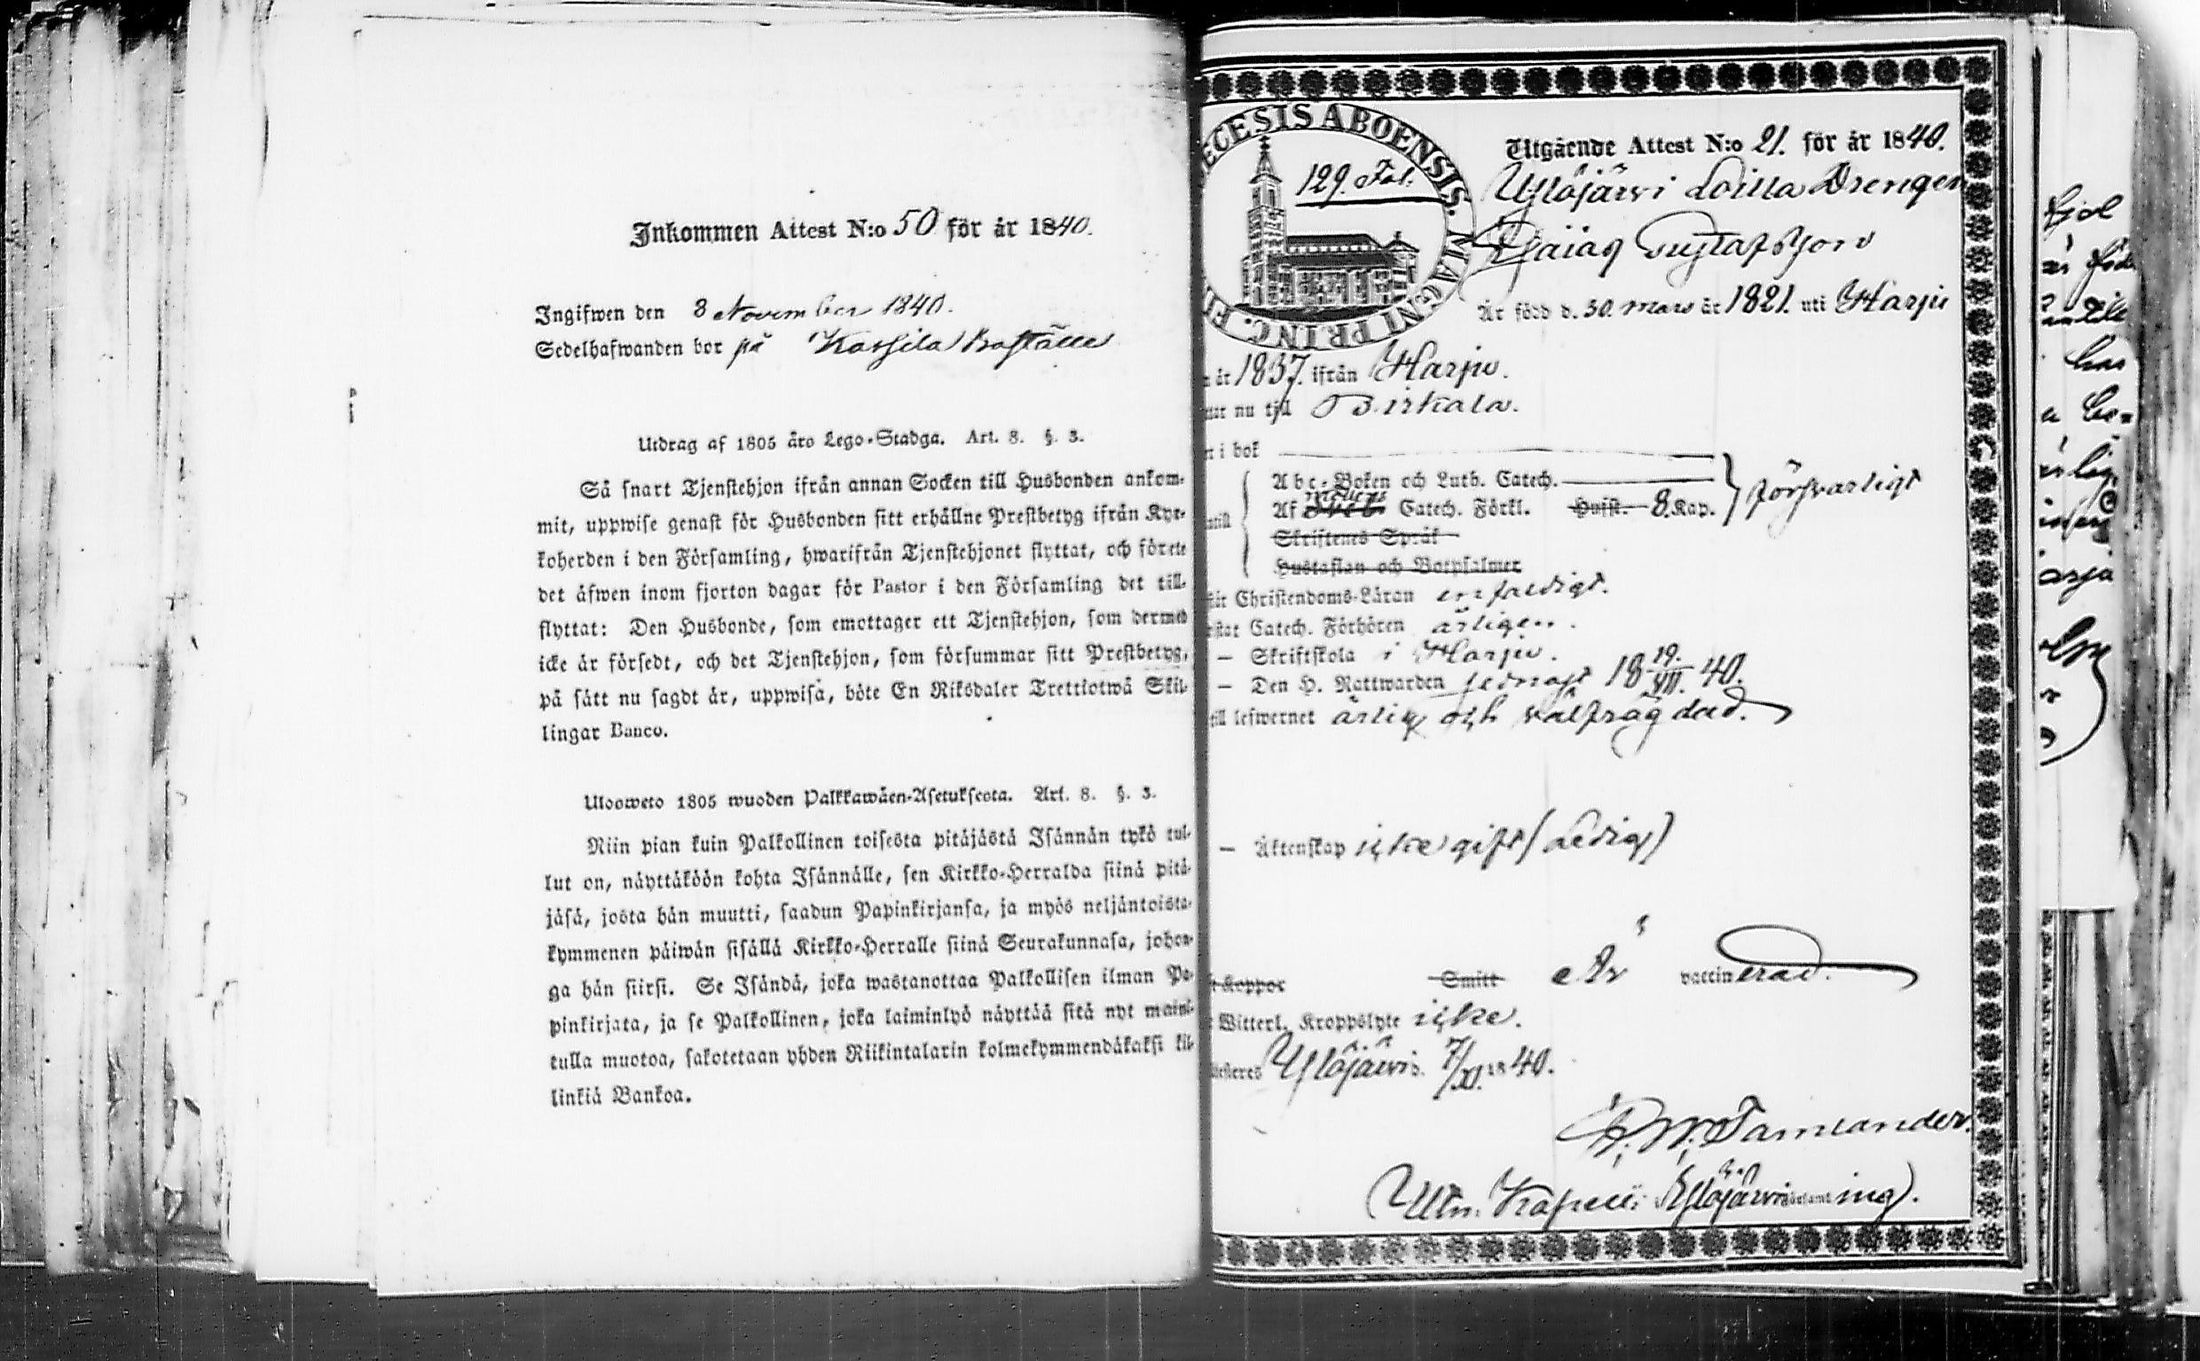 Inkommen Attest N:o 50 för år 1840.
Ingifwen den 8 November 1840.
Sedelhafwanden bor på
Utdrag af 1805 års Lego-Stadga. Art. 8. §. 3.
Så snart Tjenstehjon ifrån annan Socken till Husbonden ankom-
mit, uppwise genast för Husbonden sitt erhållne Prestbetyg ifrån Kyr-
koherden i den Församling, hwarifrån Tjenstehjonet flyttat, och förete
det äfwen inom fjorton dagar för Pastor i den Församling det till-
flyttat: Den Husbonde, som emottager ett Tjenstehjon, som dermed
icke är försedt, och det Tjenstehjon, som försummar sitt Prestbetyg,
på sätt nu sagdt är, uppwisa, böte En Riksdaler Trettiotwå Skil-
lingar Banco.
Ulosweto 1805 wuoden Palkkawäen-Asetuksesta. Art. 8. §. 3.
Niin pian kuin Palkollinen toisesta pitäjästä Isännän tykö tul-
lut on, näyttäköön kohta Isännälle, sen Kirkko-Herralda siinä pitä-
jäsä, josta hän muutti, saadun Papinkirjansa, ja myös neljäntoista-
kymmenen päiwän sisällä Kirkko-Herralle siinä Seurakunnasa, johon-
ga hän siirsi. Se Isändä, joka wastanottaa Palkollisen ilman Pa-
pinkirjata, ja se Palkollinen, joka laiminlyö näyttää sitä nyt maini-
tulla muotoa, sakotetaan yhden Riikintalarin kolmekymmendäkaksi kil-
linkiä Bankoa.
ECESIS ABOENSIS. MAGNI PRINC. FI
129. Fol.
Utgående Attest N:o 21. för år 1840.
Ylöjärwi Drengen
Esaias Gustafsson
Är född d. 30. mars år 1821. uti Harju
år 1837. ifrån Harju.
nu till Birkala.
i bok
Abc-Boken och Luth. Catech.
Af Catech. Förkl. Hufst. 8. Kap. försvarligt
Skriftenes Språk
Hustaflan och Botpsalmer
Christendoms-Läran enfaldigt.
Catech. Förhören årligen.
– Skriftskola i Harju.
– Den H. Nattwarden sednast 18 19./VII. 40.
till lefwernet ärlig och välfrägdad.
– Äktenskap icke gift (Ledig)
Koppor Smitt Är vaccinerad.
Witterl. Kroppslyte icke.
Ylöjärwi d. 7/XI. 1840.
Tamlander.
Ylöjärwi församling).